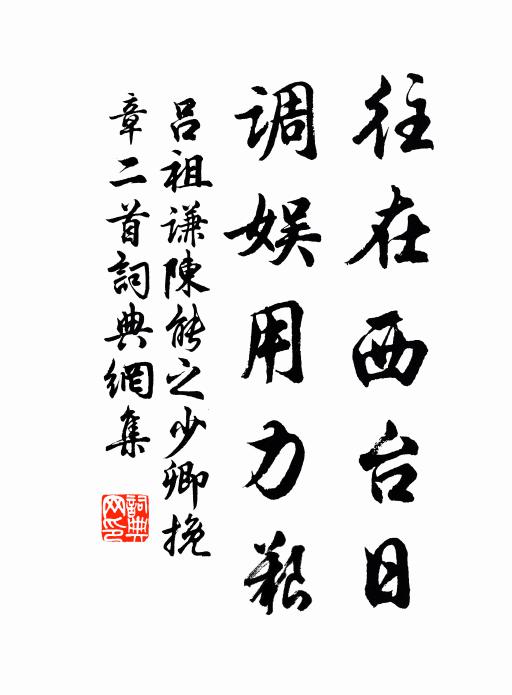 往在西台日
调娱用力艰
吕祖谦陳能之少卿挽
章二首詞典網集
詞典
网印